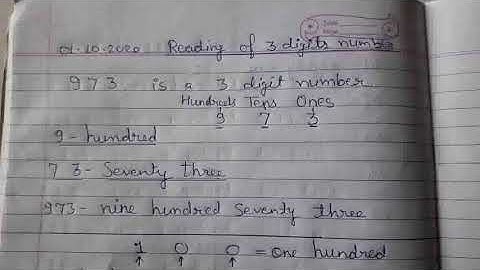 01.10.2020 Reading of 3 digits number
973 is a 3 digit number.
Hundreds Tens Ones
9 7 3
9 - hundred
73 - Seventy three
973 - nine hundred seventy three
1 0 0 = one hundred